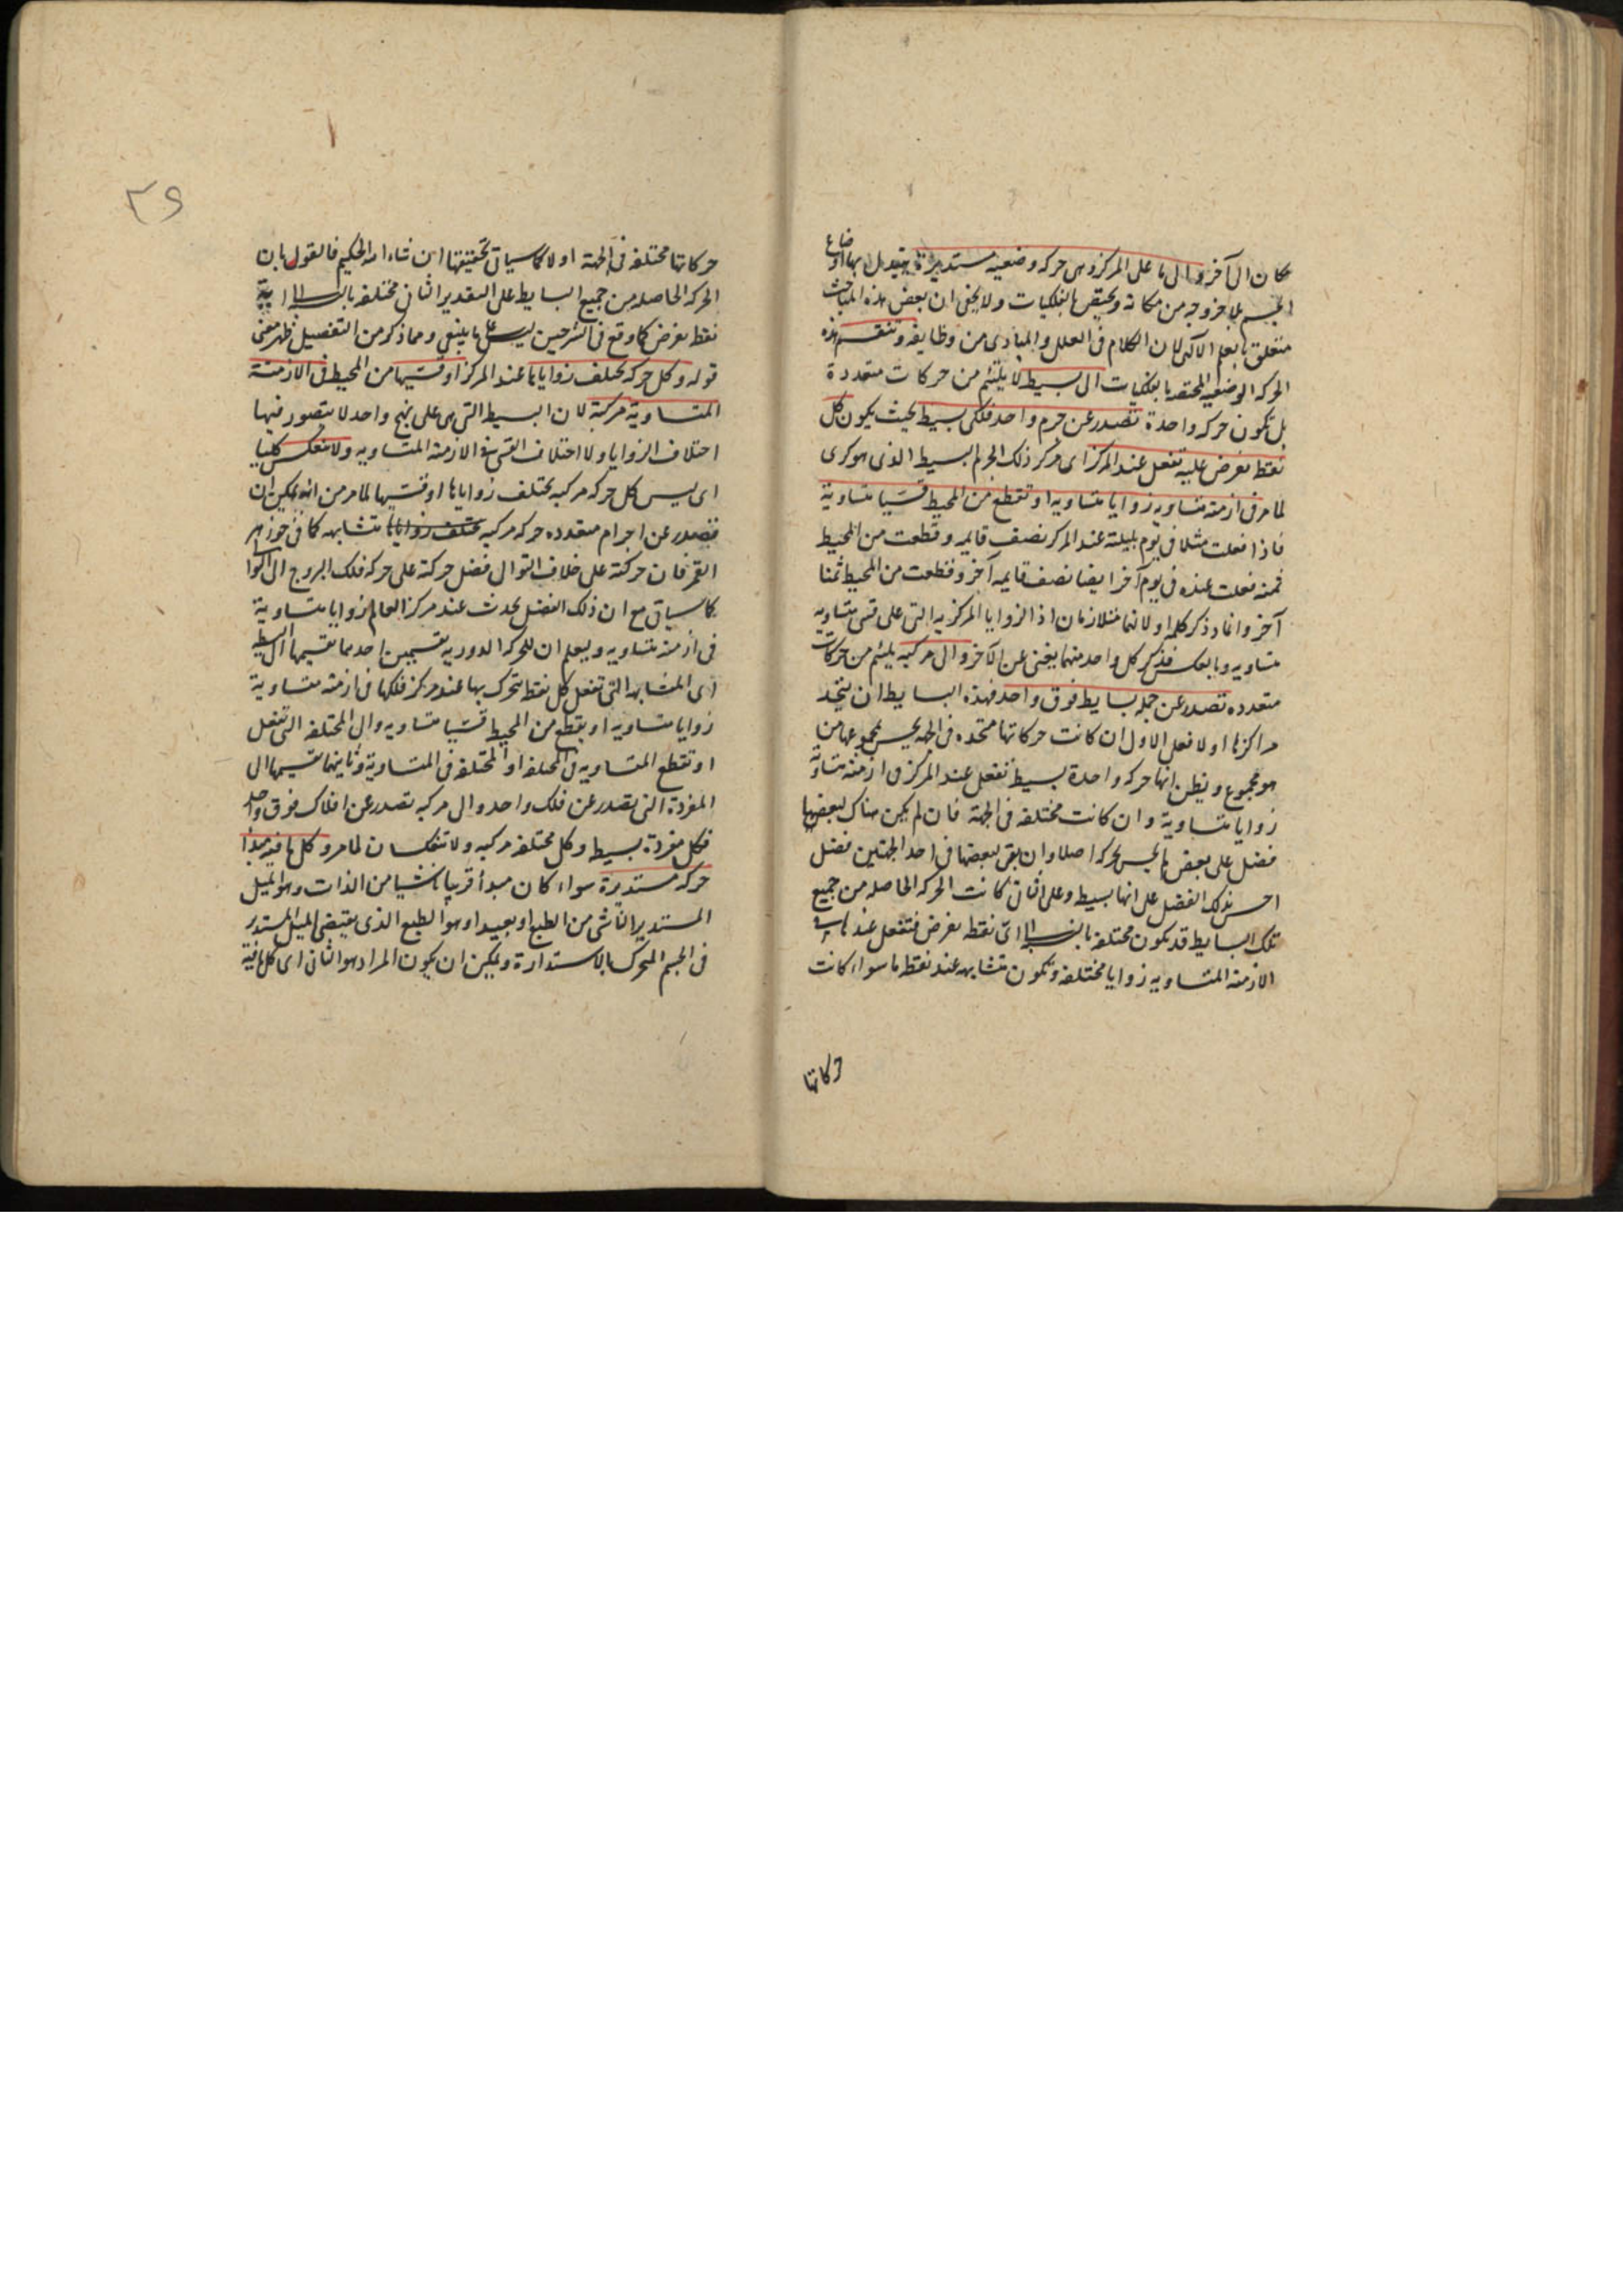 مكان الى آخر والى ما على المركز وهى حركه وضعيه مستديرة يتبدل بها اوضاع
الجسم بلا خروجه من مكانه ويختص بالفلكيات ولا يخفى ان بعض هذه المباحث
متعلق بالعلم الالهى لان الكلام فى العلل والمبادى من وظايفه وتنقسم هذه
الحركه الوضعيه المختصه بالفلكيات الى بسيط لا يلتئم من حركات متعددة
بل تكون حركه واحدة تصدر عن جرم واحد فلكى بسيط بحيث يكون كل
نقطه تفرض عليه تفعل عند المركز اى مركز ذلك الجرم البسيط الذى هو كرى
لما مر فى ازمنه متساويه زوايا متساويه او تقطع من المحيط قسيا متساوية
فاذا فعلت مثلا فى يوم بليلته عند المركز نصف قايمه وقطعت من المحيط
ثمنه فعلت عنده فى يوم آخر ايضا نصف قايمه آخر وقطعت من المحيط ثمنا
آخر وانما ذكر كلمه او لانهما متلازمان اذ الزوايا المركزيه التى على قسى متساويه
متساويه وبالعكس فذكر كل واحد منهما يغنى عن الآخر والى مركبه يلتئم من حركات
متعدده تصدر عن جمله بسايط فوق واحد فهذه البسايط ان يتحد
مراكزها اولا فعلى الاول ان كانت حركاتها متحده فى الجهه يحس بمجموعها من
هو مجموع ويظن انها حركه واحدة بسيط تفعل عند المركز فى ازمنه متساويه
زوايا متساوية وان كانت مختلفه فى الجهة فان لم يكن هناك لبعضها
فضل على بعض لم يحس بحركه اصلا وان بقى لبعضها فى احد الجهتين فضل
احس بذلك الفضل على انها بسيط وعلى الثانى كانت الحركه الحاصله من جميع
تلك البسايط قد يكون مختلفه بالنسبة الى اى نقطه تفرض فتفعل عندها فى
الازمنه المتساويه زوايا مختلفه وتكون متشابهه عند نقطه ما سواء كانت
حركاتها
٣٩
حركاتها مختلفه فى الجهة اولا كما سياتى تحقيقها ان شاء الله الحكيم فالقول بان
الحركه الحاصله من جميع البسايط على التقدير الثانى مختلفه بالنسبة الى اية
نقطه تفرض كما وقع فى الشرحين ليس على ما ينبغى ومما ذكر من التفصيل ظهر معنى
قوله وكل حركه تختلف زواياها عند المركز او قسيها من المحيط فى الازمنة
المتساوية مركبة لان البسيط التى هى على نهج واحد لا يتصور فيها
اختلاف الزوايا ولا اختلاف القسى فى الازمنه المتساويه ولا تنعكس كليا
اى ليس كل حركه مركبه تختلف زواياها او قسيها لما مر من انه يمكن ان
تصدر عن اجرام متعدده حركه مركبه تختلف زواياها متشابهه كما فى جوزهر
القمر فان حركته على خلاف التوالى فضل حركته على حركه فلك البروج الى التوالى
كما سياتى مع ان ذلك الفضل يحدث عند مركز العالم زوايا متساوية
فى ازمنه متساويه وليعلم ان للحركه الدوريه تقسيمين احدهما تقسيمها الى البسيطه
اى المتشابهه التى تفعل كل نقطه تتحرك بها عند مركز فلكها فى ازمنه متساوية
زوايا متساويه او يقطع من المحيط قسيا متساويه والى المختلفه التى تفعل
او تقطع المتساويه فى المختلفه او المختلفه فى المتساوية وثانيهما تقسيمها الى
المفردة التى تصدر عن فلك واحد والى مركبه تصدر عن افلاك فوق واحد
فكل مفردة بسيط وكل مختلفه مركبه ولا تنعكسان لما مر وكل ما فيه مبدأ
حركه مستديرة سواء كان مبدأ قريبا ناشيا من الذات وهو الميل
المستدير الناشى من الطبع او بعيدا وهو الطبع الذى يقتضى الميل المستدير
فى الجسم المتحرك بالاستدارة ويمكن ان يكون المراد هو الثانى اى كل ما فيه